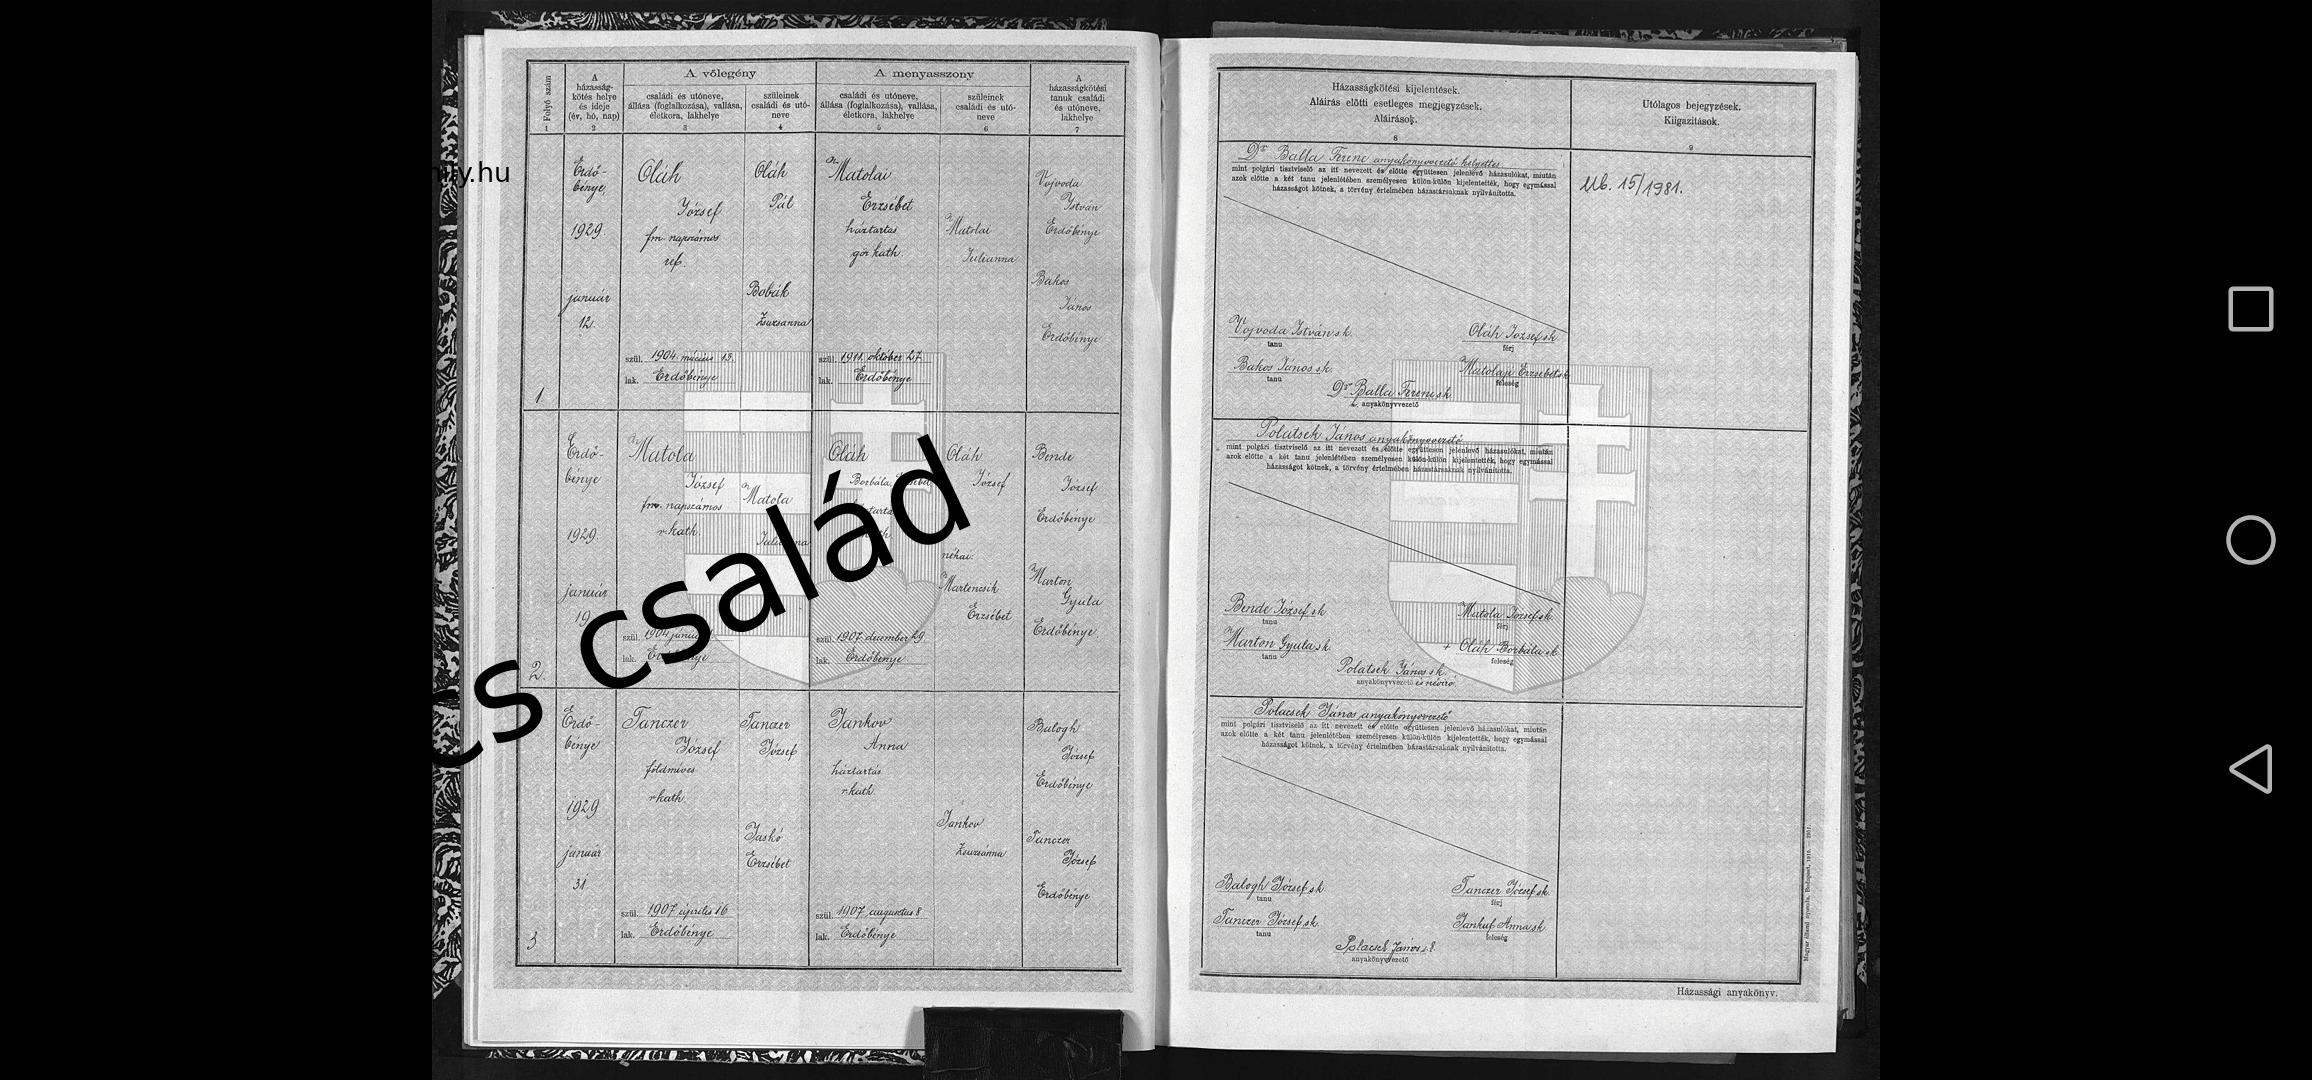 A vőlegény
A menyasszony
Folyó szám
A
házasság-
kötés helye
és ideje
(év, hó, nap)
családi és utóneve,
állása (foglalkozása), vallása,
életkora, lakhelye
szüleinek
családi és utó-
neve
családi és utóneve,
állása (foglalkozása), vallása,
életkora, lakhelye
szüleinek
családi és utó-
neve
A
házasságkötési
tanuk családi
és utóneve,
lakhelye
1 2 3 4 5 6 7
niry.hu
Erdő-
bénye
1929.
január
12
1.
Oláh
József
fm. napszámos
ref.
szül. 1904. március 13.
lak. Erdőbénye
Oláh
Pál
Bobák
Zsuzsanna
Matolai
Erzsébet
háztartás
gör kath.
szül. 1911. október 27
lak. Erdőbénye
Matolai
Julianna
Vojvoda
István
Erdőbénye
Bakos
János
Erdőbénye
Erdő-
bénye
1929.
január
19
2.
Matola
József
fm. napszámos
r. kath.
szül. 1904
lak.
Matola
Oláh
Borbála,
szül. 1907. december 29
lak. Erdőbénye
Oláh
József
néhai:
Martencsik
Erzsébet
Bende
József
Erdőbénye
Marton
Gyula
Erdőbénye
cs család
Erdő-
bénye
1929
január
31
3
Tanczer
József
földmíves
r. kath.
szül. 1907 április 16
lak. Erdőbénye
Tanczer
József
Jaskó
Erzsébet
Jankov
Anna
háztartás
r. kath.
szül. 1907 augusztus 8
lak. Erdőbénye
Jankov
Zsuzsánna
Balogh
József
Erdőbénye
Tanczer
József
Erdőbénye
Házasságkötési kijelentések.
Aláírás előtti esetleges megjegyzések.
Aláírások.
8
Utólagos bejegyzések.
Kiigazítások.
9
Dr Balla Ferenc anyakönyvvezető helyettes
mint polgári tisztviselő az itt nevezett és előtte együttesen jelenlévő házasulókat, miután
azok előtte a két tanu jelenlétében személyesen külön-külön kijelentették, hogy egymással
házasságot kötnek, a törvény értelmében házastársaknak nyilvánította.
Ub. 15/1981.
Vojvoda István sk.
tanu
Oláh József sk
férj
Bakos János sk.
tanu
Matolaji Erzsébet sk
feleség
Dr Balla Ferenc sk
h. anyakönyvvezető
Polatsek János anyakönyvvezető
mint polgári tisztviselő az itt nevezett és előtte együttesen jelenlévő házasulókat, miután
azok előtte a két tanu jelenlétében személyesen külön-külön kijelentették, hogy egymással
házasságot kötnek, a törvény értelmében házastársaknak nyilvánította.
Bende József sk
tanu
Matola József sk.
férj
Marton Gyula sk
tanu
+ Oláh Borbála sk
feleség
Polatsek János sk.
anyakönyvvezető és névíró.
Polacsek János anyakönyvvezető
mint polgári tisztviselő az itt nevezett és előtte együttesen jelenlévő házasulókat, miután
azok előtte a két tanu jelenlétében személyesen külön-külön kijelentették, hogy egymással
házasságot kötnek, a törvény értelmében házastársaknak nyilvánította.
Balogh József sk.
tanu
Tanczer József sk.
férj
Tanczer József sk.
tanu
Jankuf Anna sk
feleség
Polacsek János s.k.
anyakönyvvezető
Házassági anyakönyv.